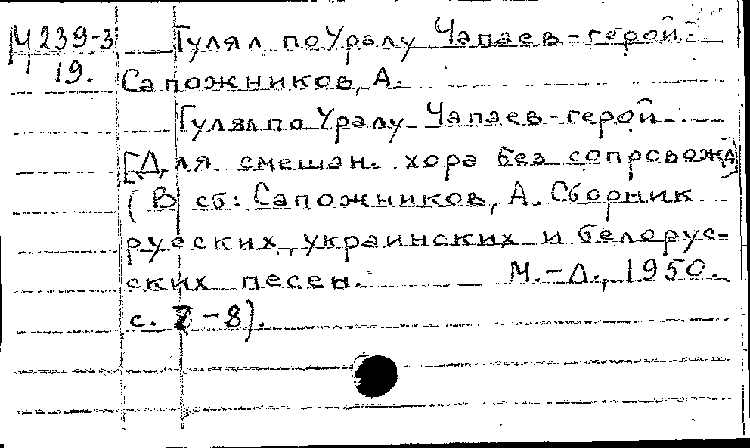 М 239-3 Гулял по Уралу Чапаев-герой.
19. Сапожников, А.
Гулял по Уралу Чапаев-герой.
[Для смешан. хора без сопровожд]
(В сб: Сапожников, А. Сборник
русских, украинских и белорус-
ских песен. М.-Л., 1950.
с. 7-8).